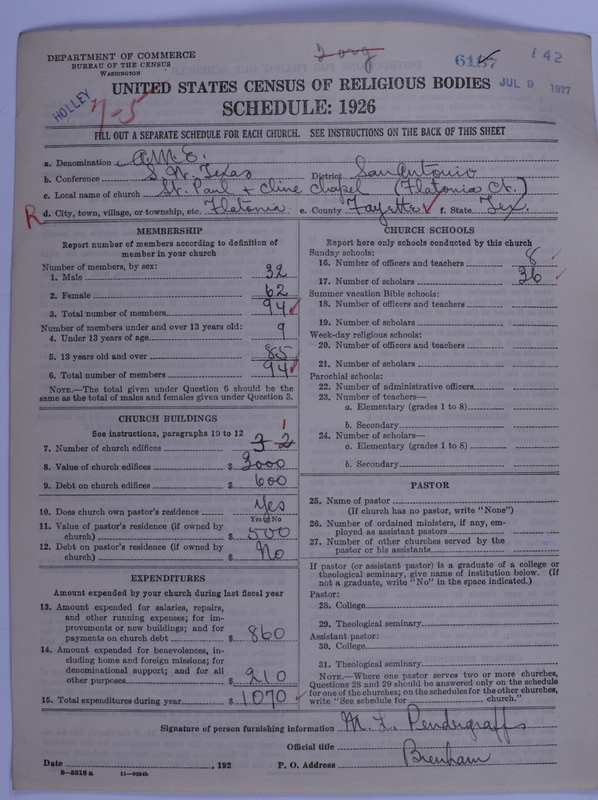 DEPARTMENT OF COMMERCE
BUREAU OF THE CENSUS
WASHINGTON
2 org
6157
142
HOLLEY
7-5
JUL 9 1927
UNITED STATES CENSUS OF RELIGIOUS BODIES
SCHEDULE: 1926
FILL OUT A SEPARATE SCHEDULE FOR EACH CHURCH. SEE INSTRUCTIONS ON THE BACK OF THIS SHEET
a. Denomination A.M.E.
b. Conference S. W. Texas District San Antonio
c. Local name of church St. Paul + Cline Chapel (Flatonia Ct.)
R d. City, town, village, or township, etc. Flatonia e. County Fayette f. State Tex.
MEMBERSHIP
Report number of members according to definition of
member in your church
Number of members, by sex:
1. Male 32
2. Female 62
3. Total number of members 94
Number of members under and over 13 years old:
4. Under 13 years of age 9
5. 13 years old and over 85
6. Total number of members 94
NOTE.—The total given under Question 6 should be the
same as the total of males and females given under Question 3.
CHURCH BUILDINGS
See instructions, paragraphs 10 to 12
1
7. Number of church edifices 3 2
8. Value of church edifices $ 3000
9. Debt on church edifices $ 600
10. Does church own pastor's residence Yes
Yes or No
11. Value of pastor's residence (if owned by
church) $ 500
12. Debt on pastor's residence (if owned by
church) $ No
EXPENDITURES
Amount expended by your church during last fiscal year
13. Amount expended for salaries, repairs,
and other running expenses; for im-
provements or new buildings; and for
payments on church debt $ 860
14. Amount expended for benevolences, in-
cluding home and foreign missions; for
denominational support; and for all
other purposes $ 210
15. Total expenditures during year $ 1070
CHURCH SCHOOLS
Report here only schools conducted by this church
Sunday schools:
16. Number of officers and teachers 8
17. Number of scholars 36
Summer vacation Bible schools:
18. Number of officers and teachers
19. Number of scholars
Week-day religious schools:
20. Number of officers and teachers
21. Number of scholars
Parochial schools:
22. Number of administrative officers
23. Number of teachers—
a. Elementary (grades 1 to 8)
b. Secondary
24. Number of scholars—
a. Elementary (grades 1 to 8)
b. Secondary
PASTOR
25. Name of pastor
(If church has no pastor, write "None")
26. Number of ordained ministers, if any, em-
ployed as assistant pastors
27. Number of other churches served by the
pastor or his assistants
If pastor (or assistant pastor) is a graduate of a college or
theological seminary, give name of institution below. (If
not a graduate, write "No" in the space indicated.)
Pastor:
28. College
29. Theological seminary
Assistant pastor:
30. College
31. Theological seminary
NOTE.—Where one pastor serves two or more churches,
Questions 28 and 29 should be answered only on the schedule
for one of the churches; on the schedules for the other churches,
write "See schedule for church."
Signature of person furnishing information M. L. Pendergraff
Official title
Date , 192 P. O. Address Brenham
8-5518 a